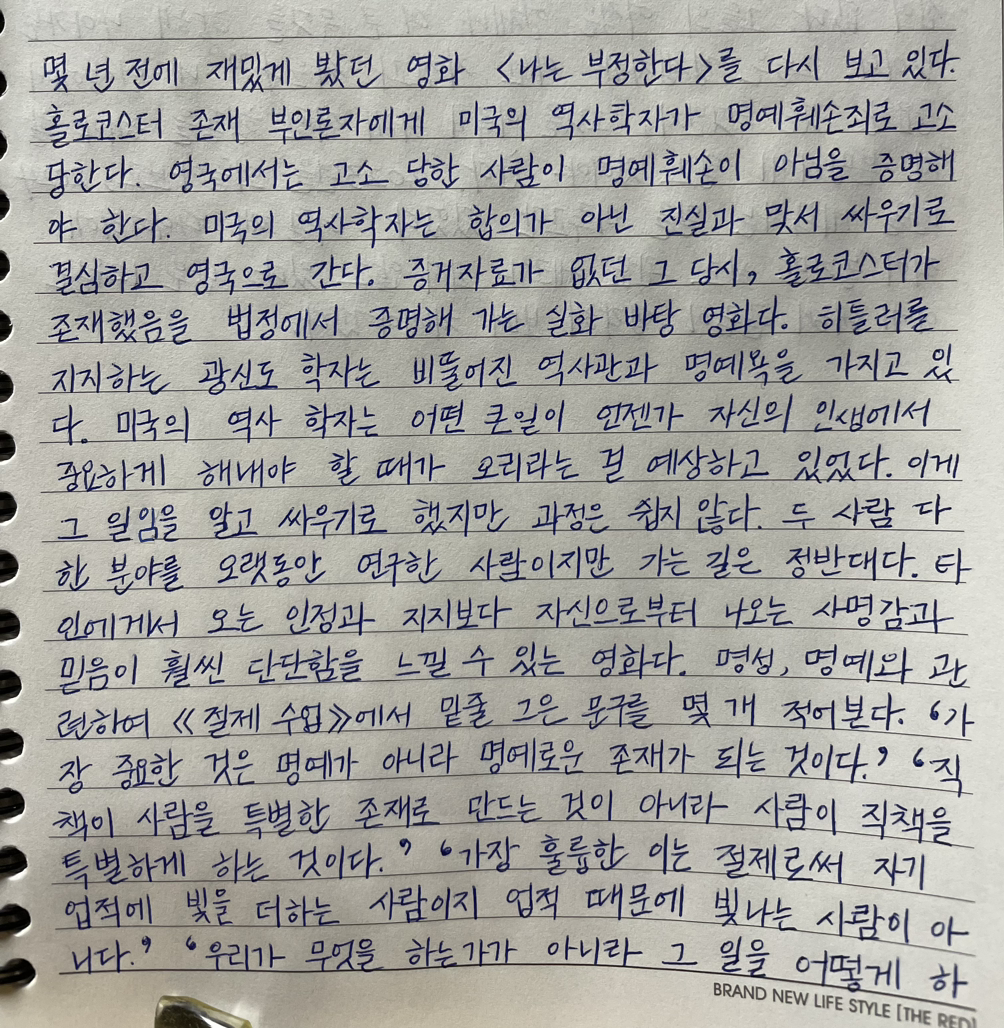 몇 년 전에 재밌게 봤던 영화 <나는 부정한다>를 다시 보고 있다.
홀로코스터 존재 부인론자에게 미국의 역사학자가 명예훼손죄로 고소
당한다. 영국에서는 고소 당한 사람이 명예훼손이 아님을 증명해
야 한다. 미국의 역사학자는 합의가 아닌 진실과 맞서 싸우기로
결심하고 영국으로 간다. 증거자료가 없던 그 당시, 홀로코스터가
존재했음을 법정에서 증명해 가는 실화 바탕 영화다. 히틀러를
지지하는 광신도 학자는 비뚤어진 역사관과 명예욕을 가지고 있
다. 미국의 역사 학자는 어떤 큰일이 언젠가 자신의 인생에서
중요하게 해내야 할 때가 오리라는 걸 예상하고 있었다. 이게
그 일임을 알고 싸우기로 했지만 과정은 쉽지 않다. 두 사람 다
한 분야를 오랫동안 연구한 사람이지만 가는 길은 정반대다. 타
인에게서 오는 인정과 지지보다 자신으로부터 나오는 사명감과
믿음이 훨씬 단단함을 느낄 수 있는 영화다. 명성, 명예와 관
련하여 《절제 수업》에서 밑줄 그은 문구를 몇 개 적어본다. ‘가
장 중요한 것은 명예가 아니라 명예로운 존재가 되는 것이다.’ ‘직
책이 사람을 특별한 존재로 만드는 것이 아니라 사람이 직책을
특별하게 하는 것이다.’ ‘가장 훌륭한 이는 절제로써 자기
업적에 빛을 더하는 사람이지 업적 때문에 빛나는 사람이 아
니다.’ ‘우리가 무엇을 하는가가 아니라 그 일을 어떻게 하
BRAND NEW LIFE STYLE [THE RED]